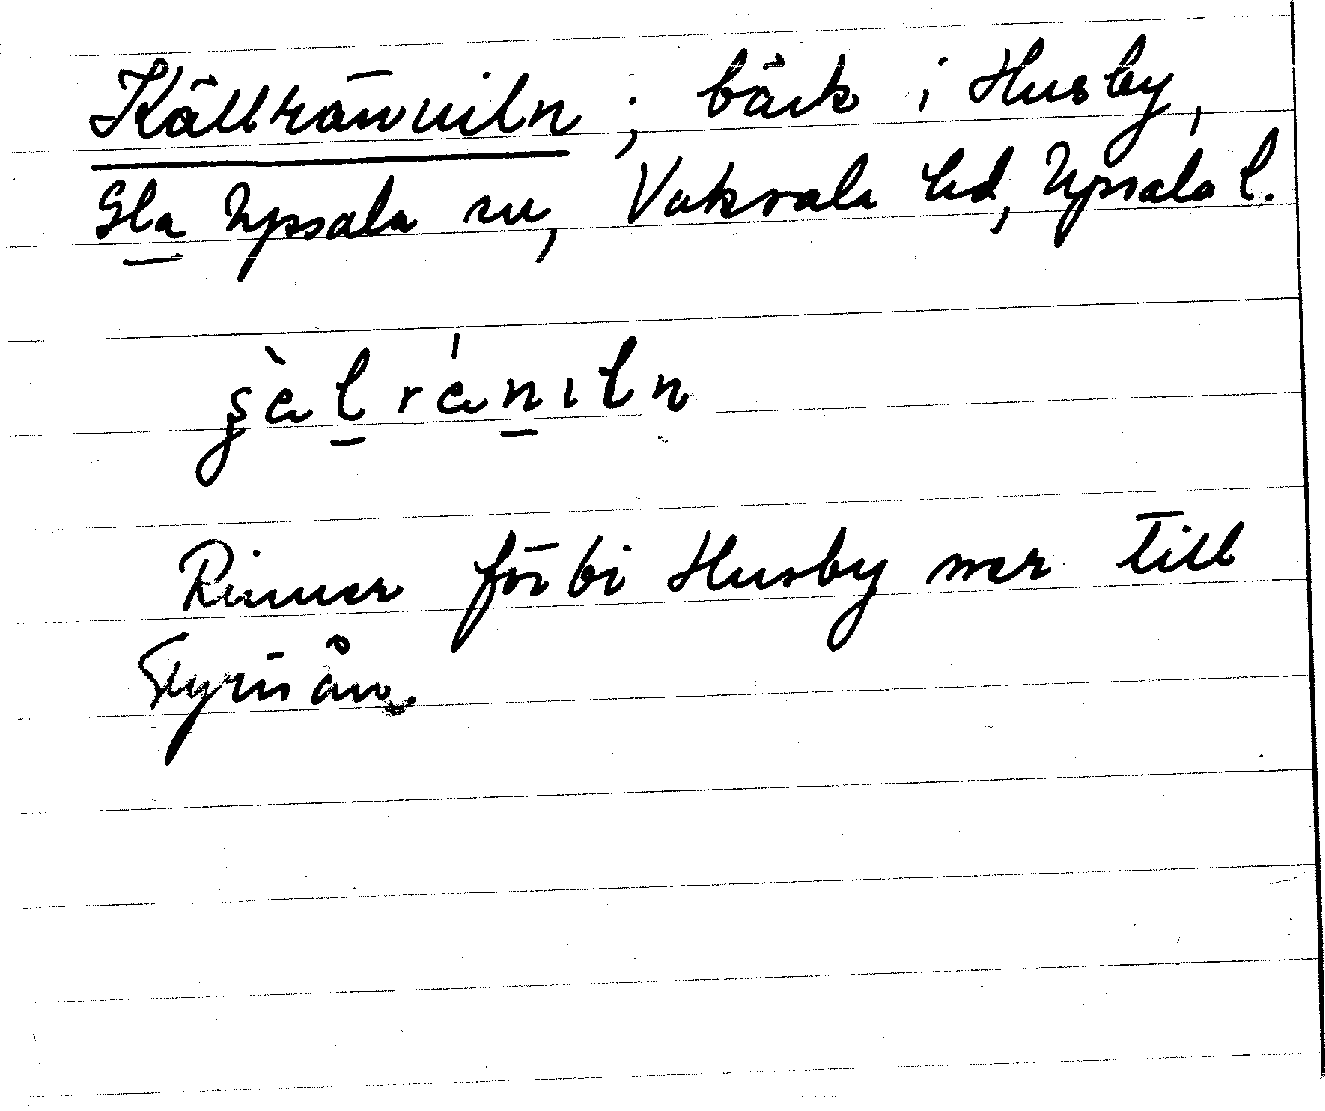 Källränniln ; bäck i Husby,
Gla Uppsala sn, Vaksala hd, Uppsala l.
Rinner förbi Husby ner till
Fyrisån.